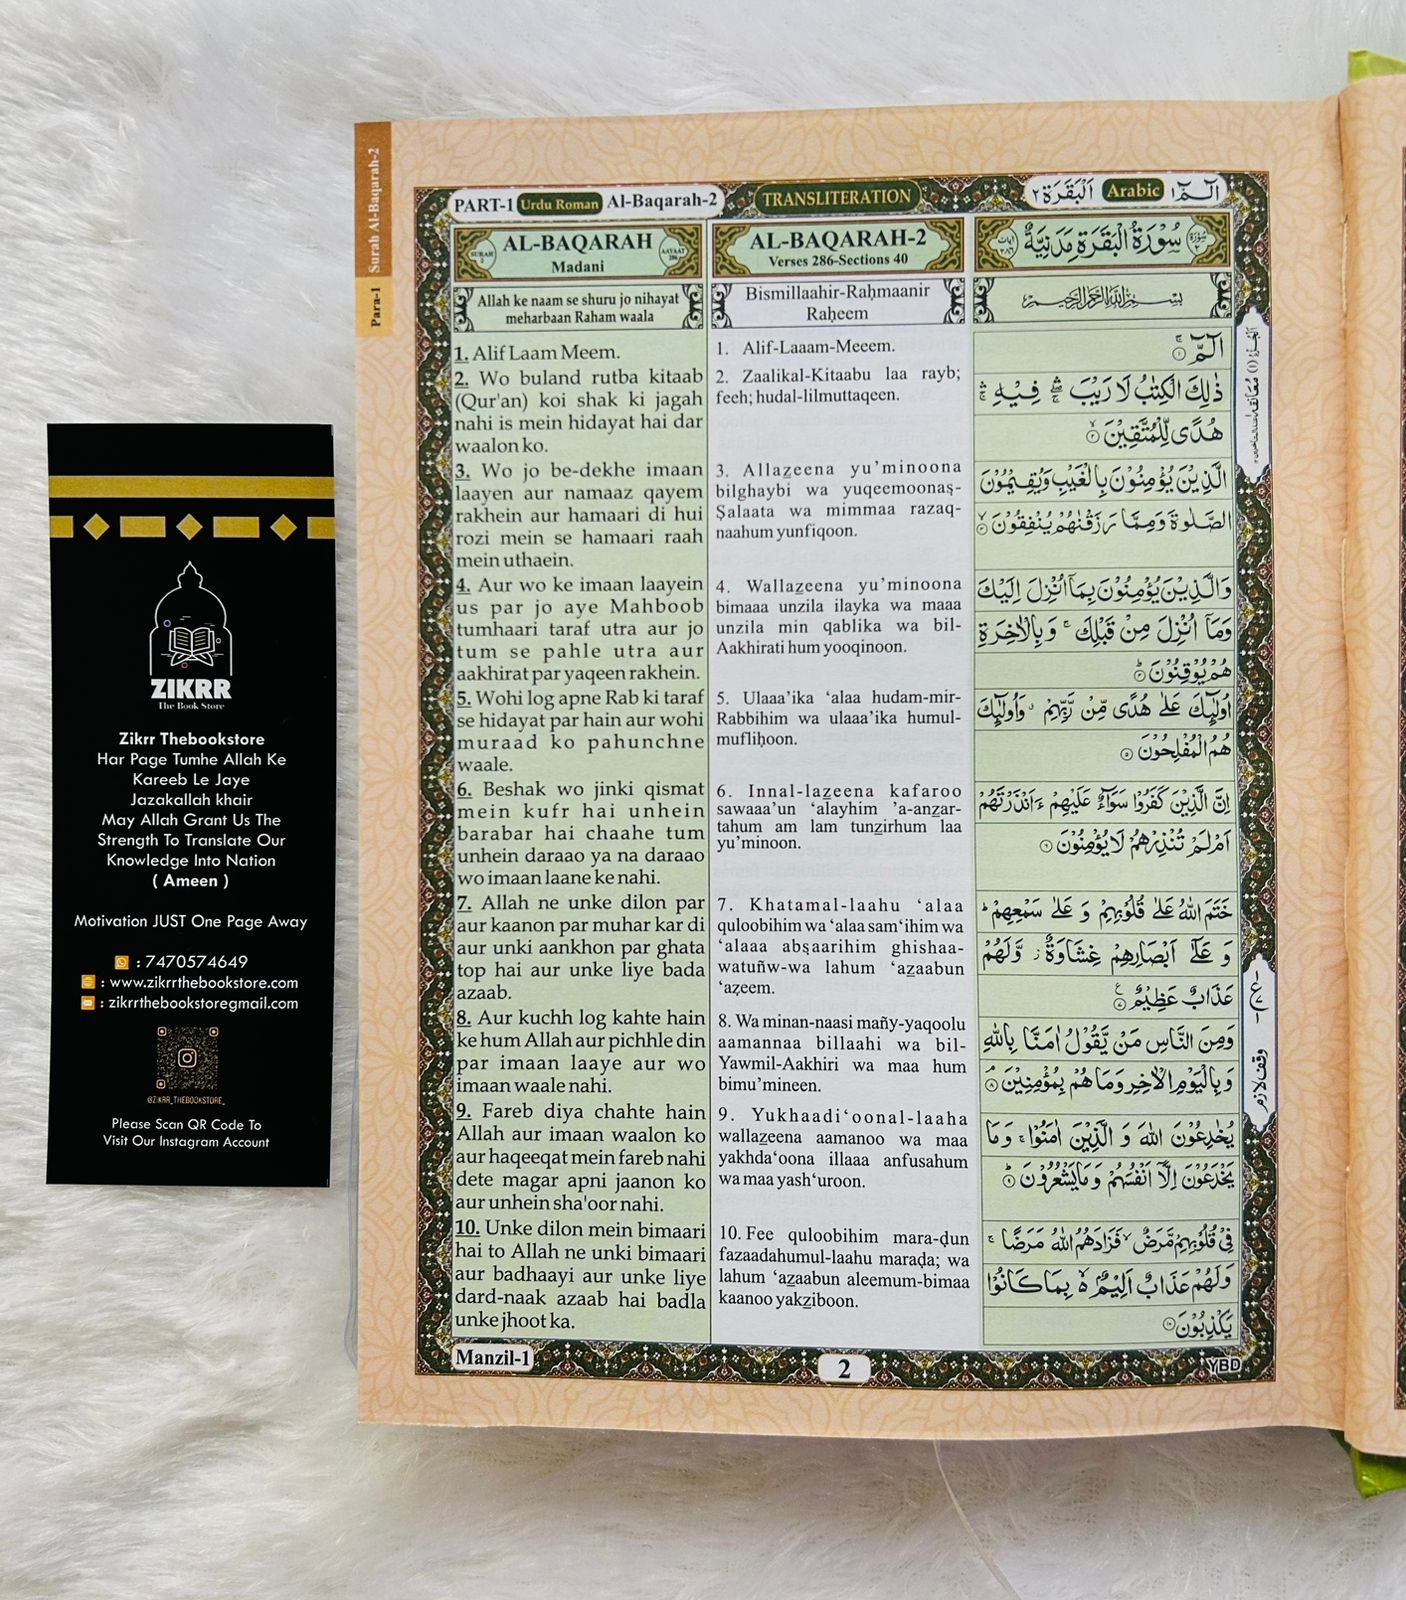 ZIKRR
The Book Store
Zikrr Thebookstore
Har Page Tumhe Allah Ke
Kareeb Le Jaye
Jazakallah khair
May Allah Grant Us The
Strength To Translate Our
Knowledge Into Nation
( Ameen )
Motivation JUST One Page Away
: 7470574649
: www.zikrrthebookstore.com
: zikrrthebookstoregmail.com
@ZIKRR_THEBOOKSTORE_
Please Scan QR Code To
Visit Our Instagram Account
Surah Al-Baqarah-2
Para-1
PART-1 Urdu Roman Al-Baqarah-2
TRANSLITERATION
الٓمّٓ ١ Arabic اَلْبَقَرَة ٢
SURAH 2
AL-BAQARAH
Madani
AAYAAT 286
Allah ke naam se shuru jo nihayat
meharbaan Raham waala
1. Alif Laam Meem.
2. Wo buland rutba kitaab
(Qur'an) koi shak ki jagah
nahi is mein hidayat hai dar
waalon ko.
3. Wo jo be-dekhe imaan
laayen aur namaaz qayem
rakhein aur hamaari di hui
rozi mein se hamaari raah
mein uthaein.
4. Aur wo ke imaan laayein
us par jo aye Mahboob
tumhaari taraf utra aur jo
tum se pahle utra aur
aakhirat par yaqeen rakhein.
5. Wohi log apne Rab ki taraf
se hidayat par hain aur wohi
muraad ko pahunchne
waale.
6. Beshak wo jinki qismat
mein kufr hai unhein
barabar hai chaahe tum
unhein daraao ya na daraao
wo imaan laane ke nahi.
7. Allah ne unke dilon par
aur kaanon par muhar kar di
aur unki aankhon par ghata
top hai aur unke liye bada
azaab.
8. Aur kuchh log kahte hain
ke hum Allah aur pichhle din
par imaan laaye aur wo
imaan waale nahi.
9. Fareb diya chahte hain
Allah aur imaan waalon ko
aur haqeeqat mein fareb nahi
dete magar apni jaanon ko
aur unhein sha'oor nahi.
10. Unke dilon mein bimaari
hai to Allah ne unki bimaari
aur badhaayi aur unke liye
dard-naak azaab hai badla
unke jhoot ka.
AL-BAQARAH-2
Verses 286-Sections 40
Bismillaahir-Raḥmaanir
Raḥeem
1. Alif-Laaam-Meeem.
2. Zaalikal-Kitaabu laa rayb;
feeh; hudal-lilmuttaqeen.
3. Allazeena yu’minoona
bilghaybi wa yuqeemoonaṣ-
Ṣalaata wa mimmaa razaq-
naahum yunfiqoon.
4. Wallazeena yu’minoona
bimaaa unzila ilayka wa maaa
unzila min qablika wa bil-
Aakhirati hum yooqinoon.
5. Ulaaa’ika ‘alaa hudam-mir-
Rabbihim wa ulaaa’ika humul-
mufliḥoon.
6. Innal-lazeena kafaroo
sawaaa’un ‘alayhim ’a-anzar-
tahum am lam tunzirhum laa
yu’minoon.
7. Khatamal-laahu ‘alaa
quloobihim wa ‘alaa sam‘ihim wa
‘alaaa abṣaarihim ghishaa-
watuñw-wa lahum ‘azaabun
‘aẓeem.
8. Wa minan-naasi mañy-yaqoolu
aamannaa billaahi wa bil-
Yawmil-Aakhiri wa maa hum
bimu’mineen.
9. Yukhaadi‘oonal-laaha
wallazeena aamanoo wa maa
yakhda‘oona illaaa anfusahum
wa maa yash‘uroon.
10. Fee quloobihim mara-ḍun
fazaadahumul-laahu maraḍa; wa
lahum ‘azaabun aleemum-bimaa
kaanoo yakziboon.
سُوْرَةُ الْبَقَرَةِ مَدَنِيَّةٌ
بِسْمِ اللّٰهِ الرَّحْمٰنِ الرَّحِيْمِ
الٓمّٓ ۚ ١
ذٰلِكَ الْكِتٰبُ لَا رَيْبَ ۛ فِيْهِ ۛ
هُدًى لِّلْمُتَّقِيْنَ ٢
الَّذِيْنَ يُؤْمِنُوْنَ بِالْغَيْبِ وَيُقِيْمُوْنَ
الصَّلٰوةَ وَمِمَّا رَزَقْنٰهُمْ يُنْفِقُوْنَ ٣
وَالَّذِيْنَ يُؤْمِنُوْنَ بِمَآ اُنْزِلَ اِلَيْكَ
وَمَآ اُنْزِلَ مِنْ قَبْلِكَ ۚ وَبِالْاٰخِرَةِ
هُمْ يُوْقِنُوْنَ ؕ ٤
اُولٰٓئِكَ عَلٰى هُدًى مِّنْ رَّبِّهِمْ وَاُولٰٓئِكَ
هُمُ الْمُفْلِحُوْنَ ٥
اِنَّ الَّذِيْنَ كَفَرُوْا سَوَآءٌ عَلَيْهِمْ ءَاَنْذَرْتَهُمْ
اَمْ لَمْ تُنْذِرْهُمْ لَا يُؤْمِنُوْنَ ٦
خَتَمَ اللّٰهُ عَلٰى قُلُوْبِهِمْ وَ عَلٰى سَمْعِهِمْ ؕ
وَ عَلٰٓى اَبْصَارِهِمْ غِشَاوَةٌ ؗ وَّلَهُمْ
عَذَابٌ عَظِيْمٌ ٧
وَمِنَ النَّاسِ مَنْ يَّقُوْلُ اٰمَنَّا بِاللّٰهِ
وَ بِالْيَوْمِ الْاٰخِرِ وَمَا هُمْ بِمُؤْمِنِيْنَ ۘ ٨
يُخٰدِعُوْنَ اللّٰهَ وَ الَّذِيْنَ اٰمَنُوْا ۚ وَ مَا
يَخْدَعُوْنَ اِلَّآ اَنْفُسَهُمْ وَ مَا يَشْعُرُوْنَ ؕ ٩
فِيْ قُلُوْبِهِمْ مَّرَضٌ فَزَادَهُمُ اللّٰهُ مَرَضًا ۚ
وَ لَهُمْ عَذَابٌ اَلِيْمٌۢ بِمَا كَانُوْا
يَكْذِبُوْنَ ١٠
وقف لازم
Manzil-1
2
YBD